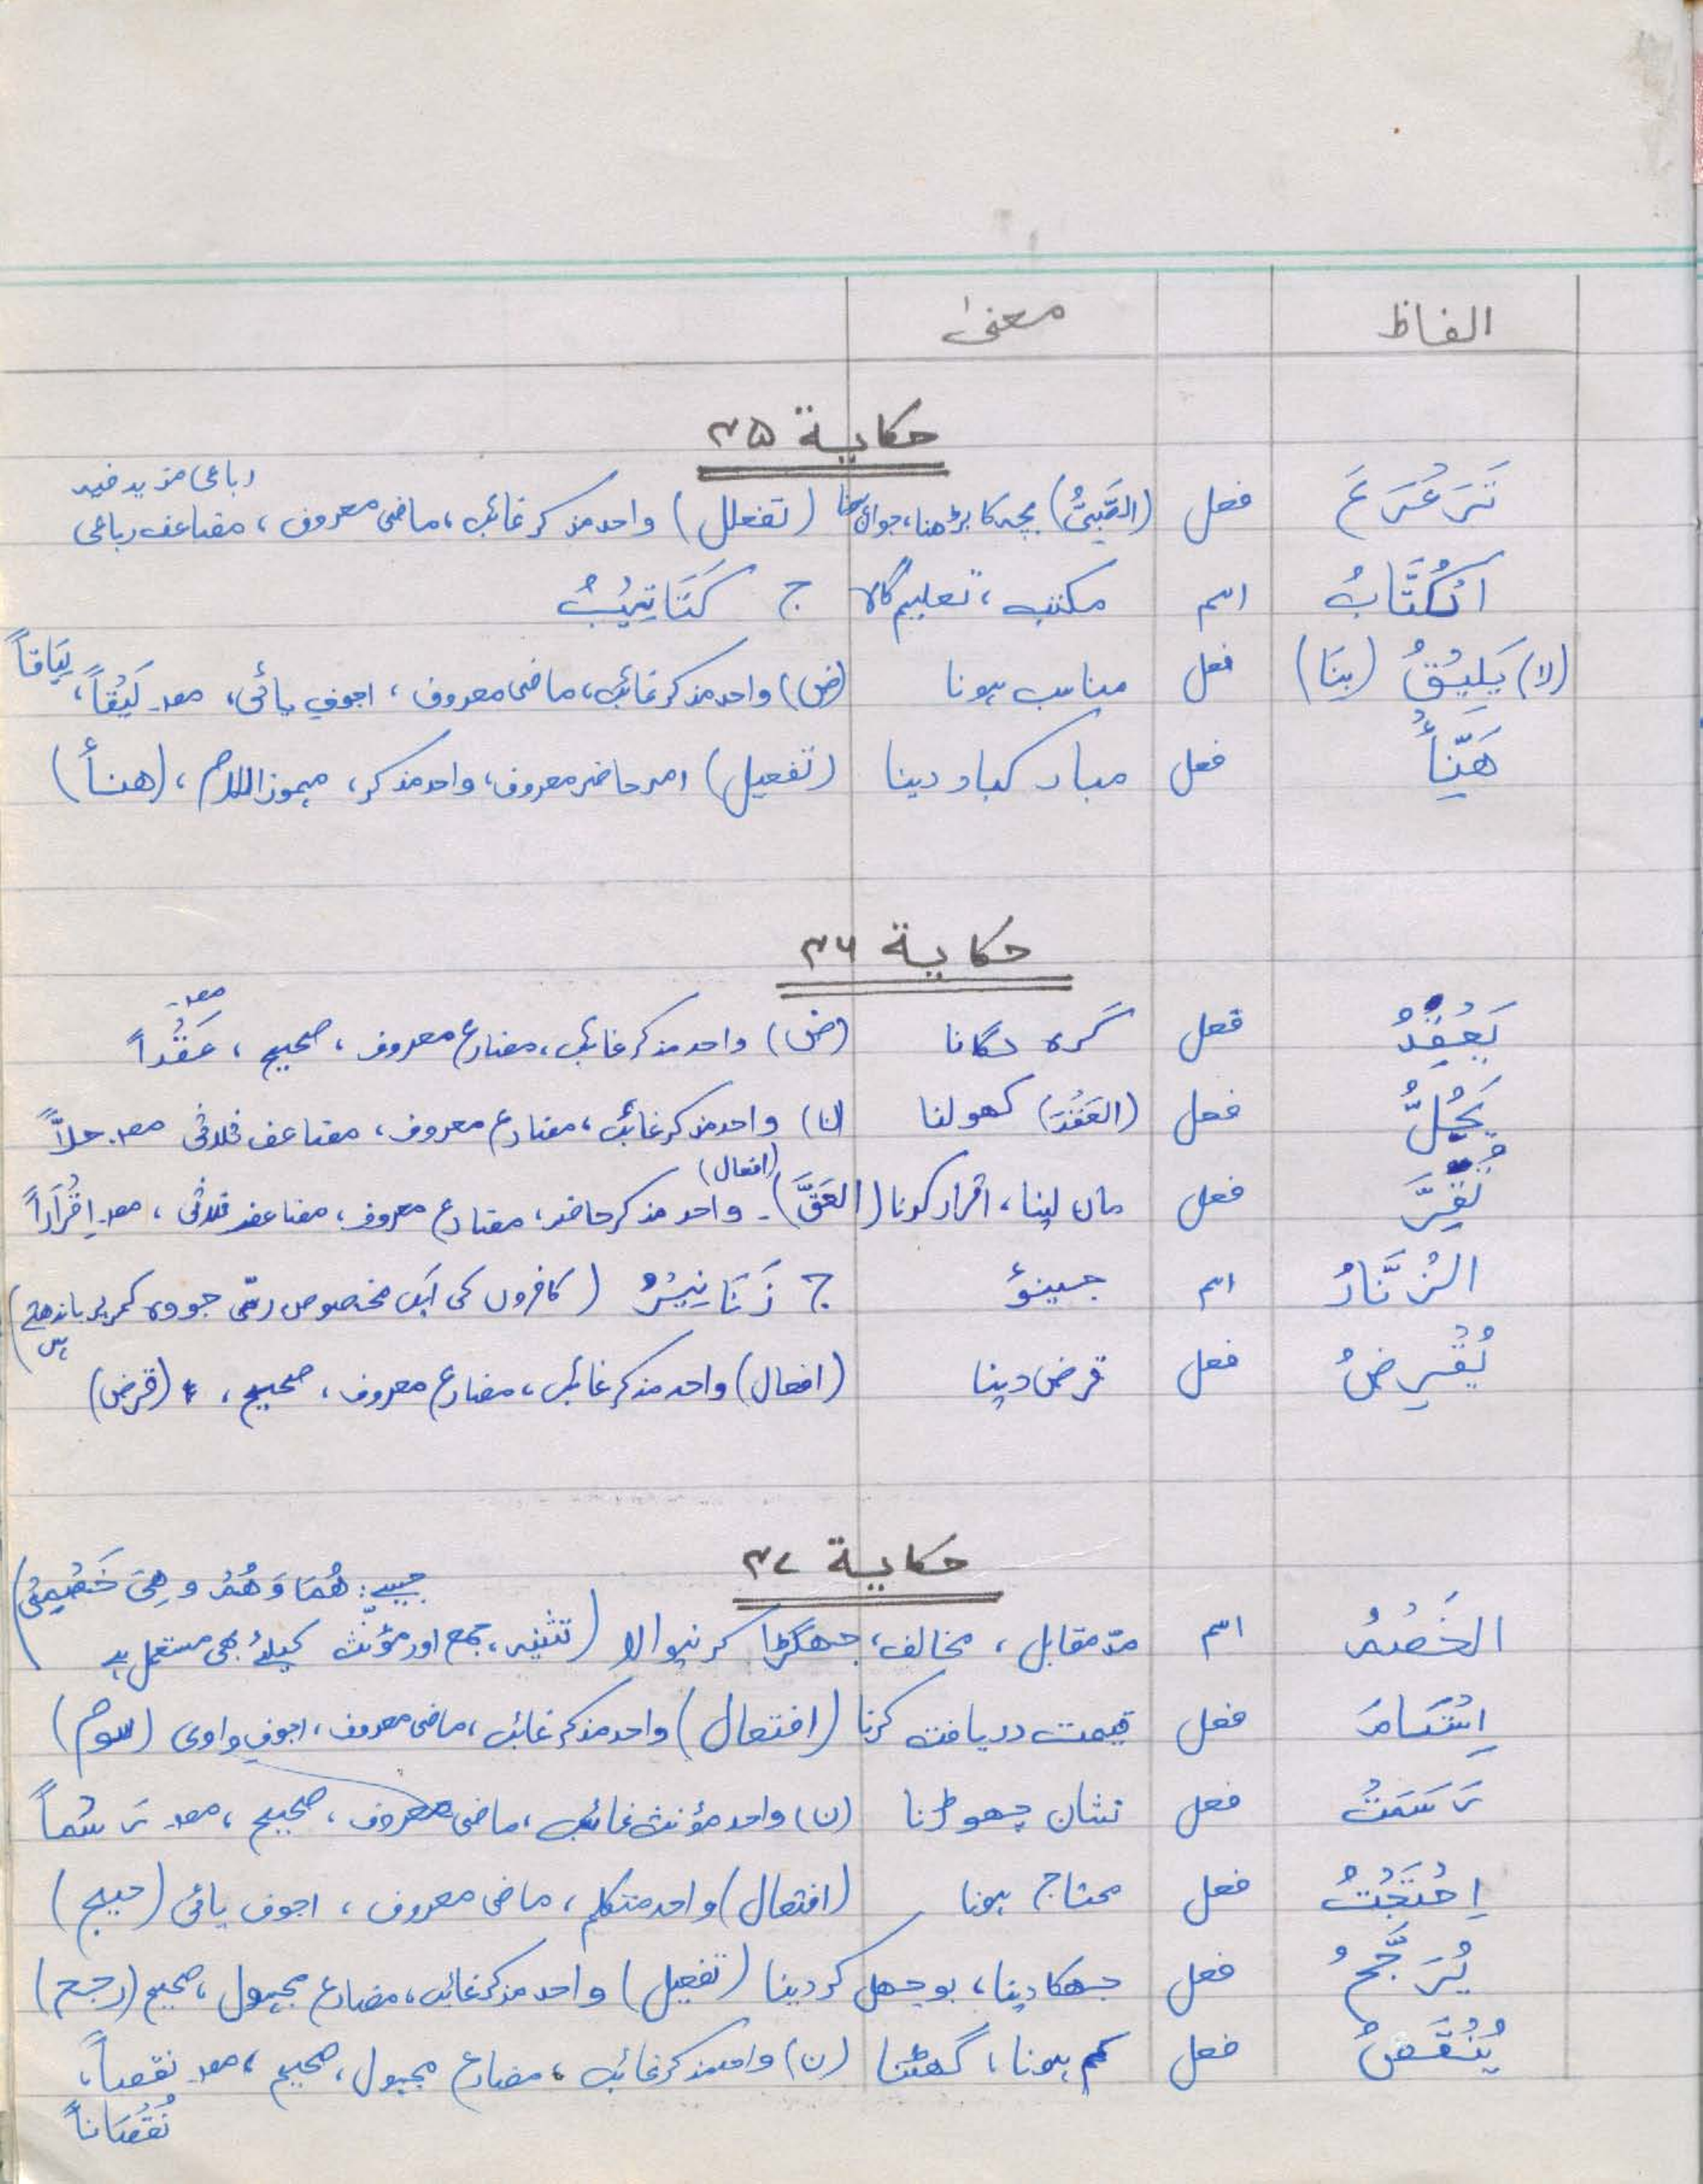 الفاظ معنیٰ
حكاية ۳۵
رباعی مزید فیہ
تَرَعْرَعَ فعل (الصَّبِيُّ) بچہ کا بڑھنا، جوان ہونا (تفعلل) واحد مذکر غائب، ماضی معروف، مضاعف رباعی
اَلْكُتَّابُ اسم مکتب، تعلیم گاہ ج كَتَاتِيْبُ
(لا) يَلِيْقُ (بِنَا) فعل مناسب ہونا (ض) واحد مذکر غائب، ماضی معروف، اجوف یائی، مصـ لَيْقاً، لِيَاقاً
هَنِّأْ فعل مبارکباد دینا (تفعیل) امر حاضر معروف، واحد مذکر، مہموز اللام، (هنأ)
حكاية ۳۶
يَعْقِدُ فعل گرہ لگانا (ض) واحد مذکر غائب، مضارع معروف، صحیح، مصـ عَقْداً
يَحُلُّ فعل (العَقْدَ) کھولنا (ن) واحد مذکر غائب، مضارع معروف، مضاعف ثلاثی مصـ حلاًّ
تُقِرَّ فعل مان لینا، اقرار کرنا (الحَقَّ)۔ (افعال) واحد مذکر حاضر، مضارع معروف، مضاعف ثلاثی، مصـ اِقْرَاراً
الزُنَّارُ اسم جینؤ ج زَنَانِيْرُ (کافروں کی ایک مخصوص رسّی جو وہ کمر پر باندھتے ہیں)
يُقْرِضُ فعل قرض دینا (افعال) واحد مذکر غائب، مضارع معروف، صحیح، (قرض)
حكاية ۳۷
جیسے: هُمَا وَ هُمْ و هِيَ خَصْمِيْ)
الخَصْمُ اسم مدّ مقابل، مخالف، جھگڑا کرنیوالا (تثنیہ، جمع اور مؤنّث کیلئے بھی مستعمل ہے
اِسْتَامَ فعل قیمت دریافت کرنا (افتعال) واحد مذکر غائب، ماضی معروف، اجوف واوی (سوم)
رَسَمَتْ فعل نشان چھوڑنا (ن) واحد مؤنث غائب، ماضی معروف، صحیح، مصـ رَسْماً
اِحْتَجْتُ فعل محتاج ہونا (افتعال) واحد متکلم، ماضی معروف، اجوف یائی (حیج)
يُرَجَّحُ فعل جھکا دینا، بوجھل کر دینا (تفعیل) واحد مذکر غائب، مضارع مجہول، صحیح (رجح)
يُنْقَصُ فعل کم ہونا، گھٹنا (ن) واحد مذکر غائب، مضارع مجہول، صحیح، مصـ نقصاً،
نُقْصَاناً